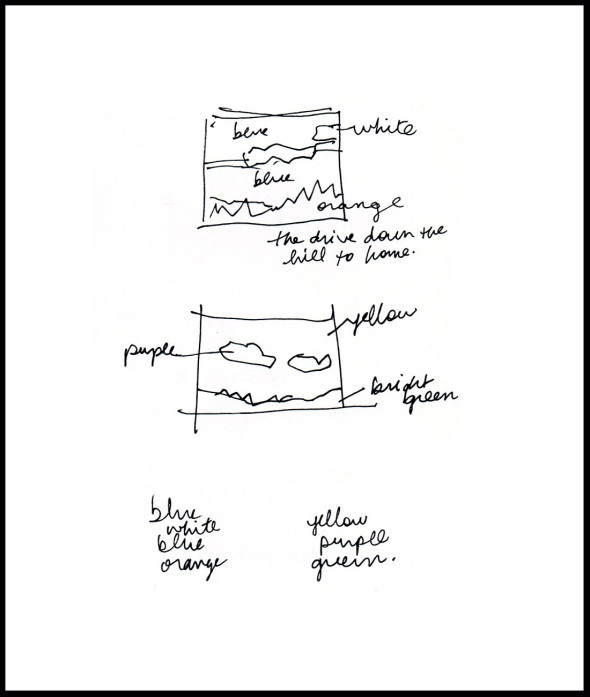 blue
white
blue
orange
the drive down the
hill to home.
yellow
purple
bright
green
blue
white
blue
orange
yellow
purple
green.